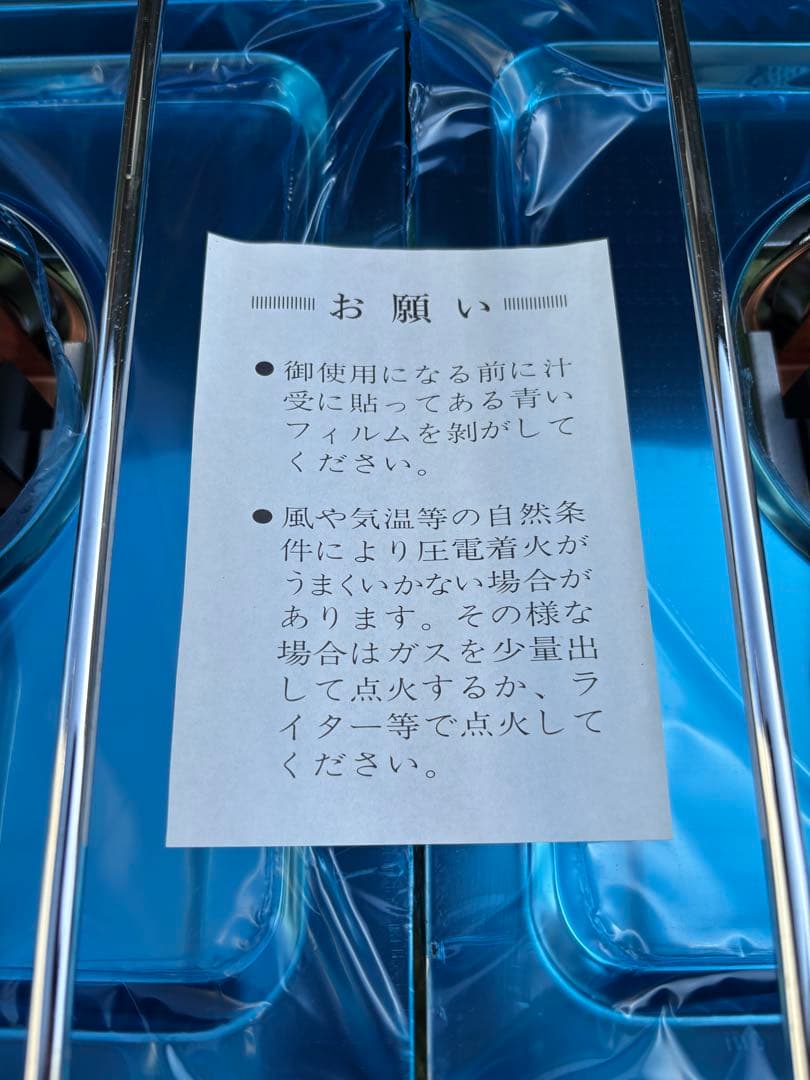 お願い
●御使用になる前に汁
受に貼ってある青い
フィルムを剥がして
ください。
●風や気温等の自然条
件により圧電着火が
うまくいかない場合が
あります。その様な
場合はガスを少量出
して点火するか、ラ
イター等で点火して
ください。